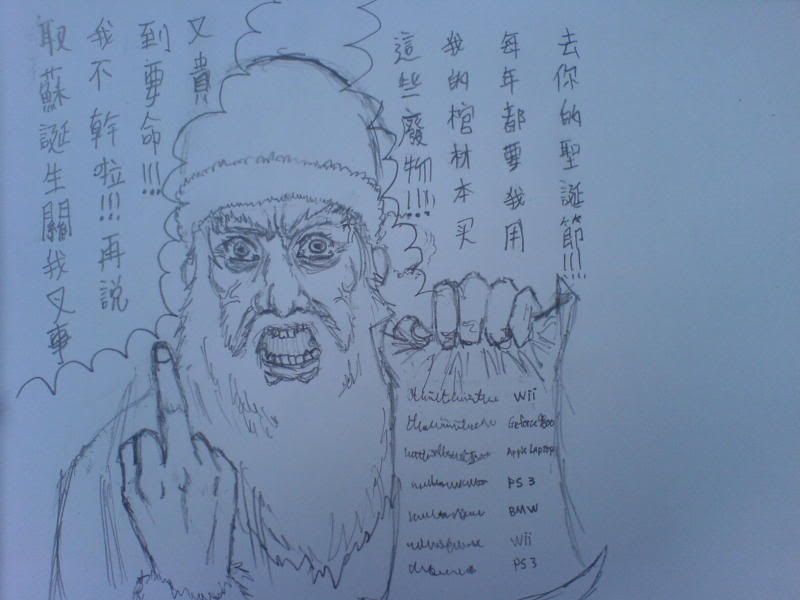 去你的聖誕節!!!
每年都要我用
我的棺材本买
這些廢物!!!!
又貴
到要命!!!
我不幹啦!!!再説
取蘇誕生關我叉事
Wii
Geforce 9800
Apple Laptop
PS3
BMW
Wii
PS3